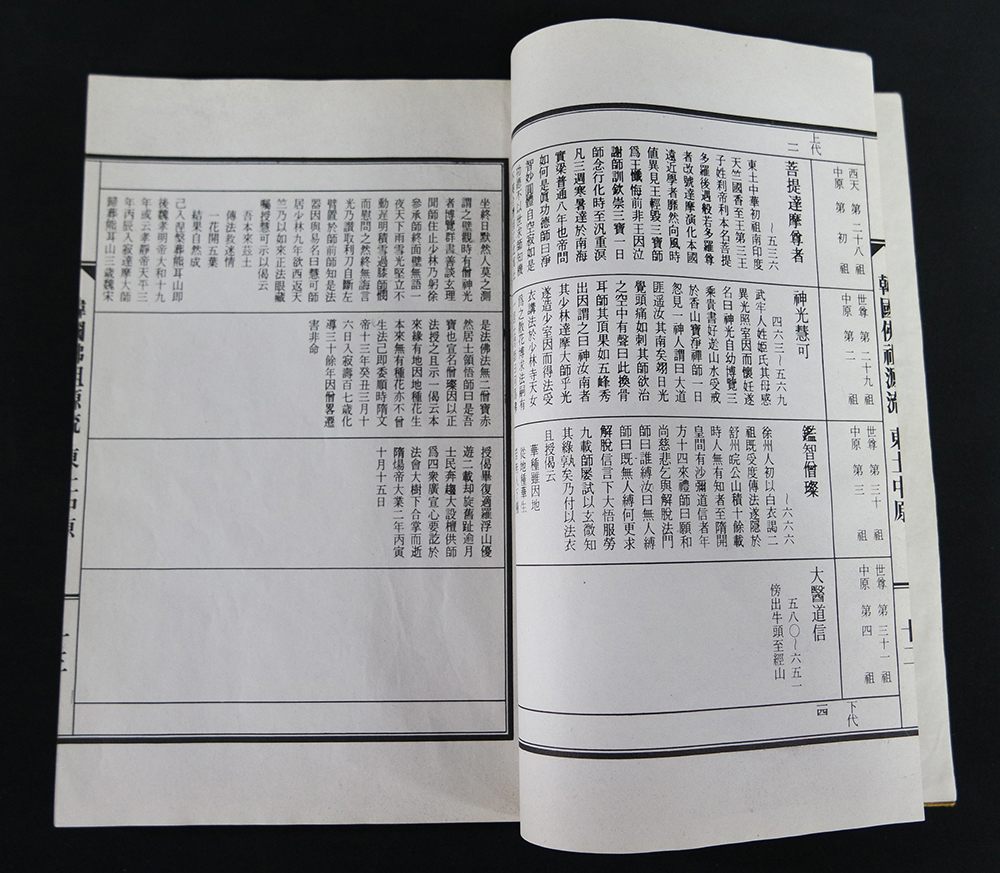 韓國佛祖源流 東土中原
十二
上代
二
西天 第二十八祖
中原 第初祖
菩提達摩尊者
～五三六
東土中華初祖南印度
天竺國香至王第三王
子姓利帝利本名菩提
多羅後遇般若多羅尊
者改號達摩演化本國
遠近學者靡然向風時
値異見王輕毀三寶師
爲王懺悔前非王因泣
謝師訓欽崇三寶一日
師念行化時至汎重溟
凡三週寒暑達於南海
實梁普通八年也帝問
如何是眞功德師曰淨
智妙圓體自空寂如是
世尊 第二十九祖
中原 第二祖
神光慧可
四六三～五六九
武牢人姓姬氏其母感
異光照室因而懷姙遂
名曰神光自幼博覽三
乘貴書好遊山水受戒
於香山寶淨禪師一日
忽見一神人謂曰大道
匪遥汝其南矣翊日光
覺頭痛如刺其師欲治
之空中有聲曰此換骨
耳師其頂果如五峰秀
出因謂之曰神汝南者
其少林達摩大師乎光
遂造少室因而得法受
衣講法於少林寺天女
世尊 第三十祖
中原 第三祖
鑑智僧璨
～六六六
徐州人初以白衣謁二
祖既受度傳法遂隱於
舒州皖公山積十餘載
時人無有知者至隋開
皇間有沙彌道信者年
方十四來禮師曰願和
尚慈悲乞與解脫法門
師曰誰縛汝曰無人縛
師曰既無人縛何更求
解脫信言下大悟服勞
九載師屢試以玄微知
其緣孰矣乃付以法衣
且授偈云
華種雖因地
從地種華生
世尊 第三十一祖
中原 第四祖
大醫道信
五八〇～六五一
傍出牛頭至經山
下代
一四
坐終日默然人莫之測
謂之壁觀時有僧神光
者博覽群書善談玄理
聞師住止少林乃躬徐
參承師終面壁無語一
夜天下雨雪光堅立不
動遅明積雪過膝師憫
而慰問之然終無誨言
光乃潛取利刀自斷左
臂置於師前師知是法
器因與易名曰慧可師
居少林九年欲西返天
竺乃以如來正法眼藏
囑授慧可示以偈云
吾本來玆土
傳法救迷情
一花開五葉
結果自然成
己入涅槃葬熊耳山即
後魏孝明帝大和十九
年或云孝靜帝天平三
年丙辰入寂達摩大師
歸葬熊耳山三歲魏宋
是法佛法無二僧寶赤
然居士領悟師曰是吾
寶也宣名僧璨因以正
法授之且示一偈云本
來緣有地因地種花生
本來無有種花亦不曾
生法己即委順時隋文
帝十三年癸丑三月十
六日入寂壽百七歲化
導三十餘年因僧畧遷
害非命
授偈畢復適羅浮山優
遊二載却旋舊趾逾月
士民奔趨大設檀供師
爲四衆廣宣心要訖於
法會大樹下合掌而逝
隋煬帝大業二年丙寅
十月十五日
韓國佛祖源流 東土中原
十三